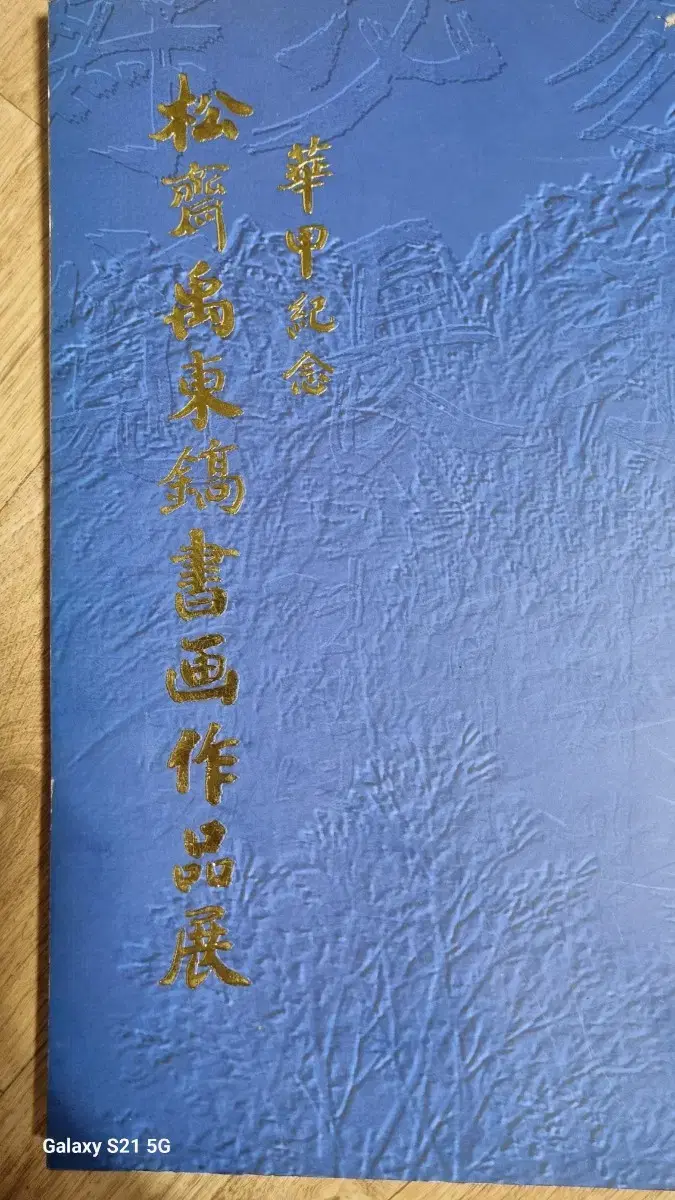 華甲紀念
松齊禹東鎬書画作品展
Galaxy S21 5G